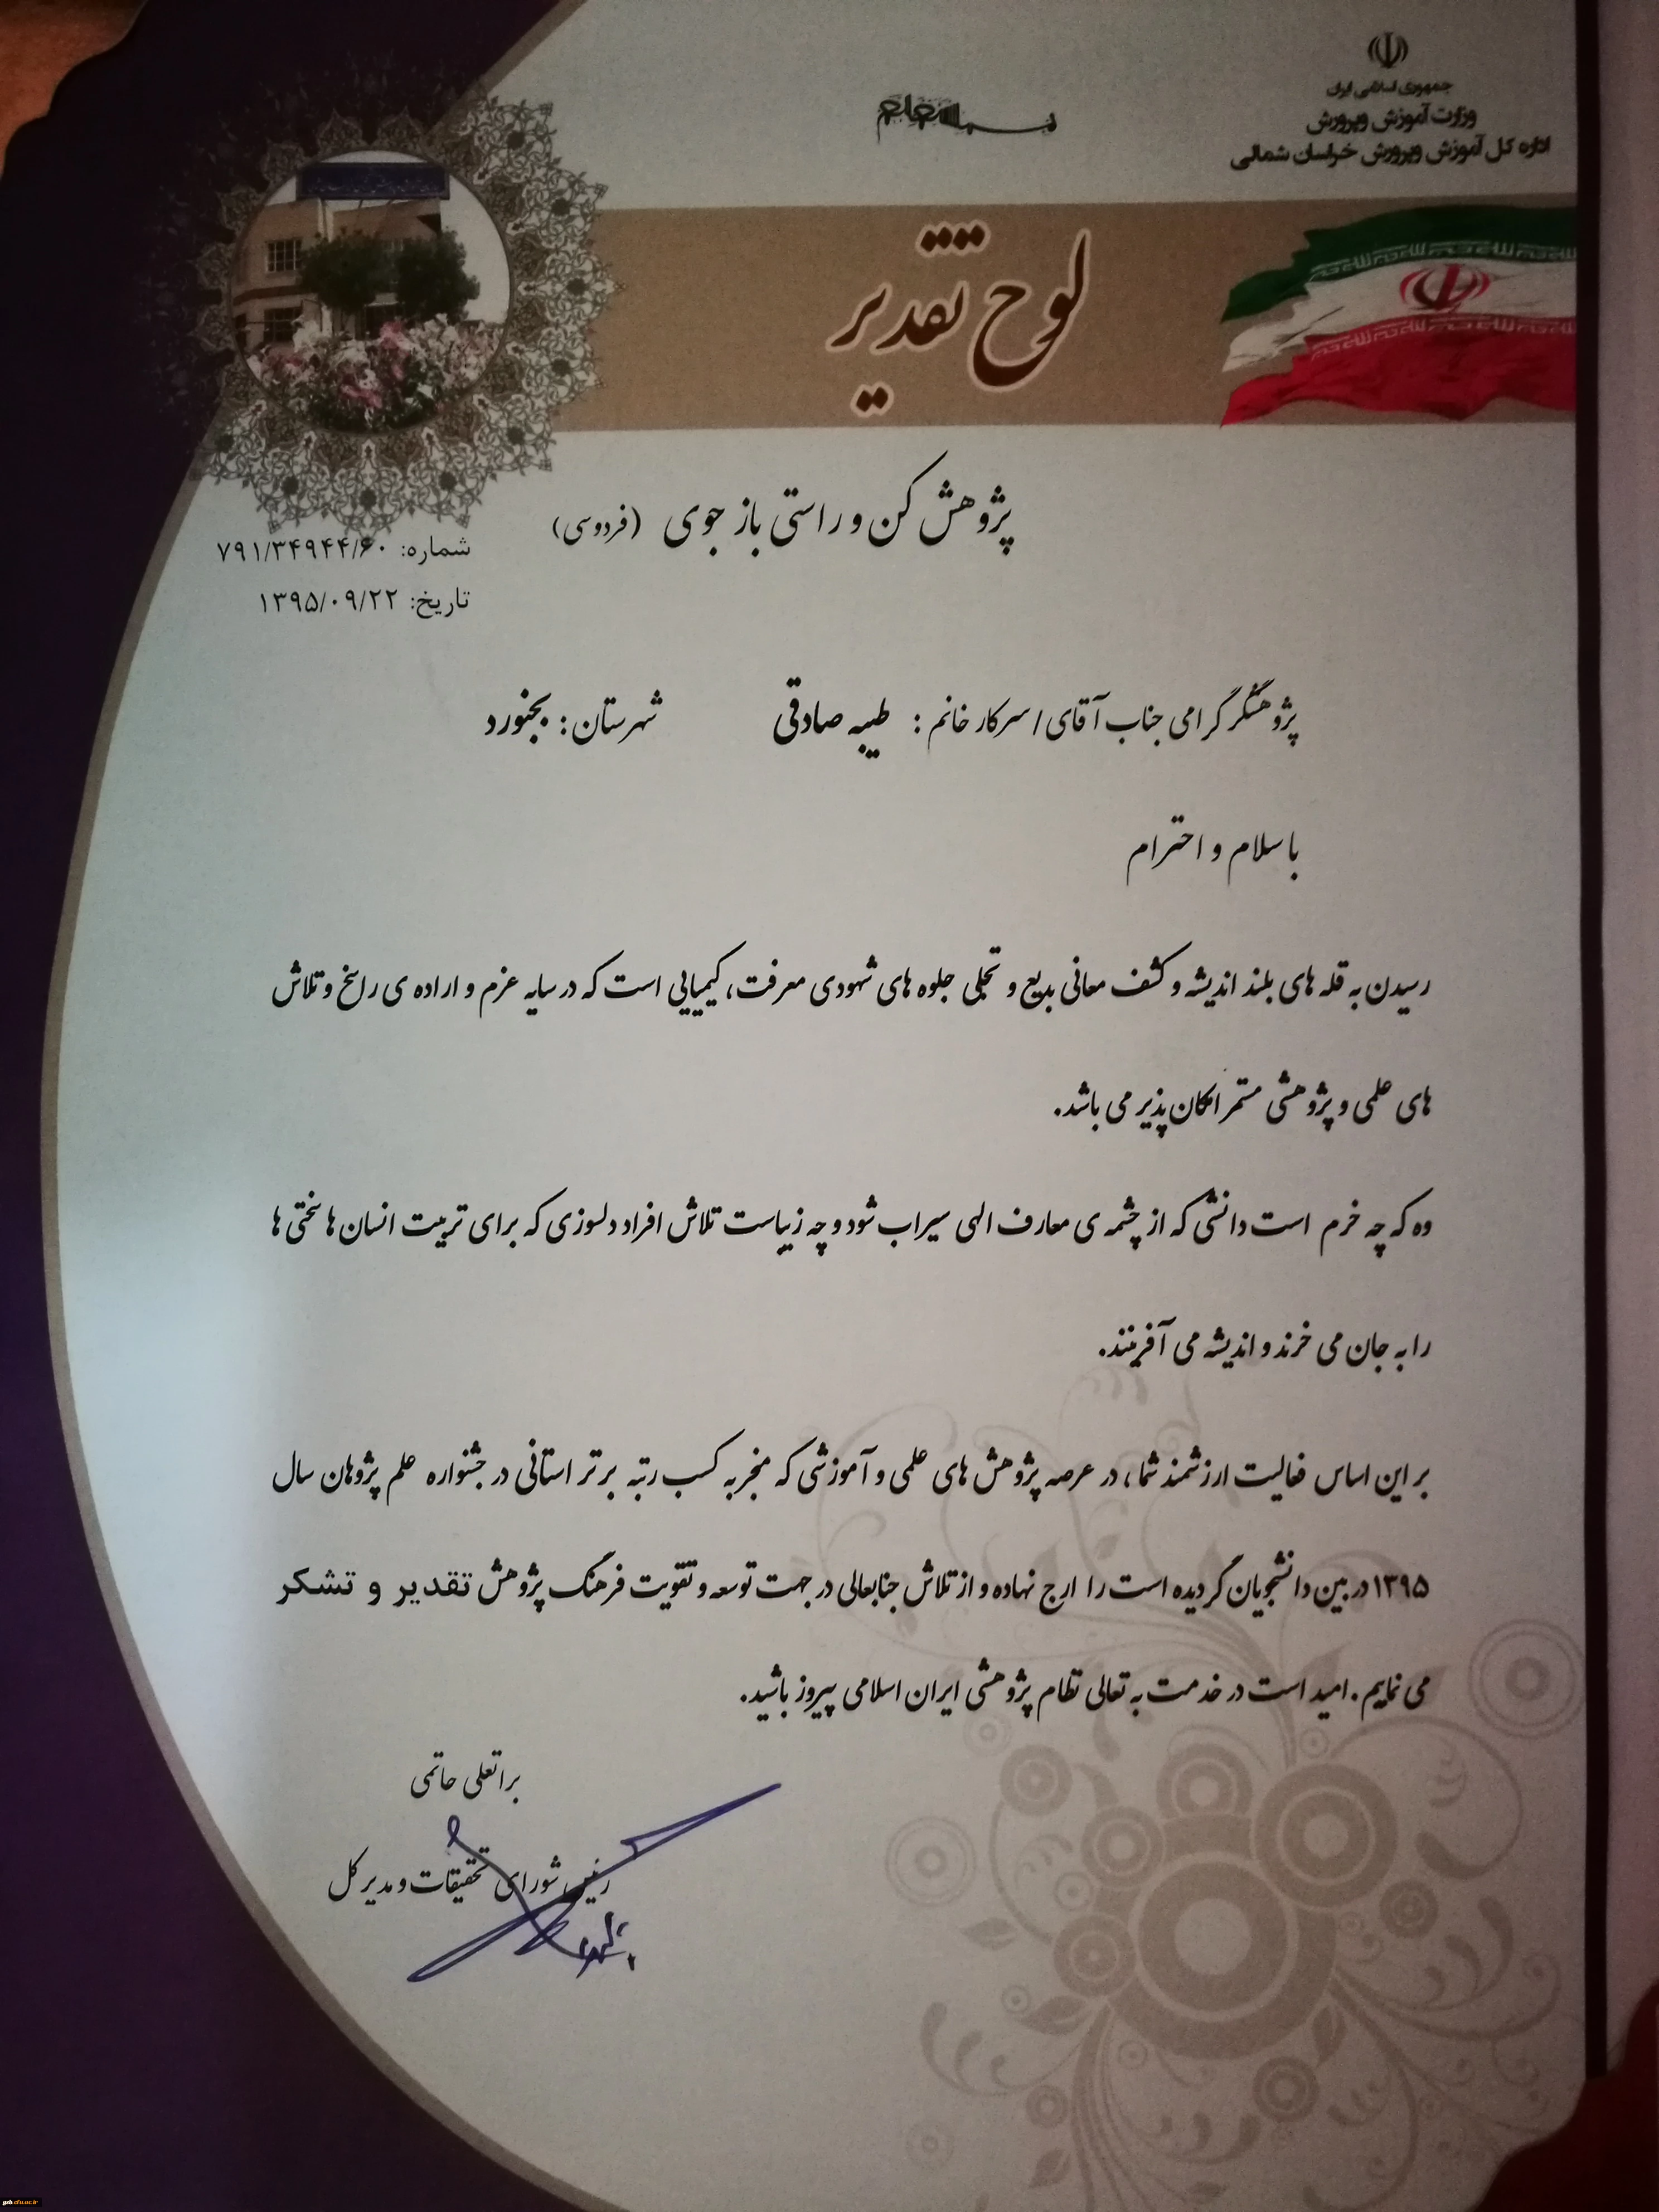 جمهوری اسلامی ایران
وزارت آموزش و پرورش
اداره کل آموزش و پرورش خراسان شمالی
لوح تقدیر
پژوهش کن و راستی باز جوی (فردوسی)
شماره: ۷۹۱/۳۴۹۴۴/۶۰
تاریخ: ۱۳۹۵/۰۹/۲۲
پژوهشگر گرامی جناب آقای/ سرکار خانم : طیبه صادقی شهرستان: بجنورد
با سلام و احترام
رسیدن به قله های بلند اندیشه و کشف معانی بدیع و تجلی جلوه های شهودی معرفت، کیمیایی است که در سایه عزم و اراده ی راسخ و تلاش
های علمی و پژوهشی مستمر امکان پذیر می باشد.
وه که چه خرم است دانشی که از چشمه ی معارف الهی سیراب شود و چه زیباست تلاش افراد دلسوزی که برای تربیت انسان ها سختی ها
را به جان می خرند و اندیشه می آفرینند.
بر این اساس فعالیت ارزشمند شما، در عرصه پژوهش های علمی و آموزشی که منجر به کسب رتبه برتر استانی در جشنواره علم پژوهان سال
۱۳۹۵ در بین دانشجویان گردیده است را ارج نهاده و از تلاش جنابعالی در جهت توسعه و تقویت فرهنگ پژوهش تقدیر و تشکر
می نماییم. امید است در خدمت به تعالی نظام پژوهشی ایران اسلامی پیروز باشید.
براتعلی حاتمی
رئیس شورای تحقیقات و مدیر کل